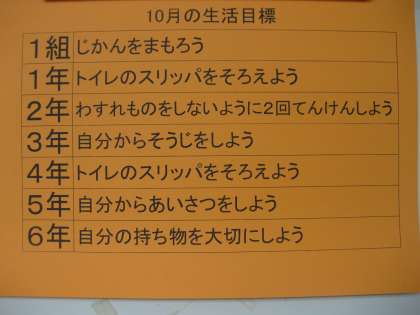 10月の生活目標
1組 じかんをまもろう
1年 トイレのスリッパをそろえよう
2年 わすれものをしないように2回てんけんしよう
3年 自分からそうじをしよう
4年 トイレのスリッパをそろえよう
5年 自分からあいさつをしよう
6年 自分の持ち物を大切にしよう